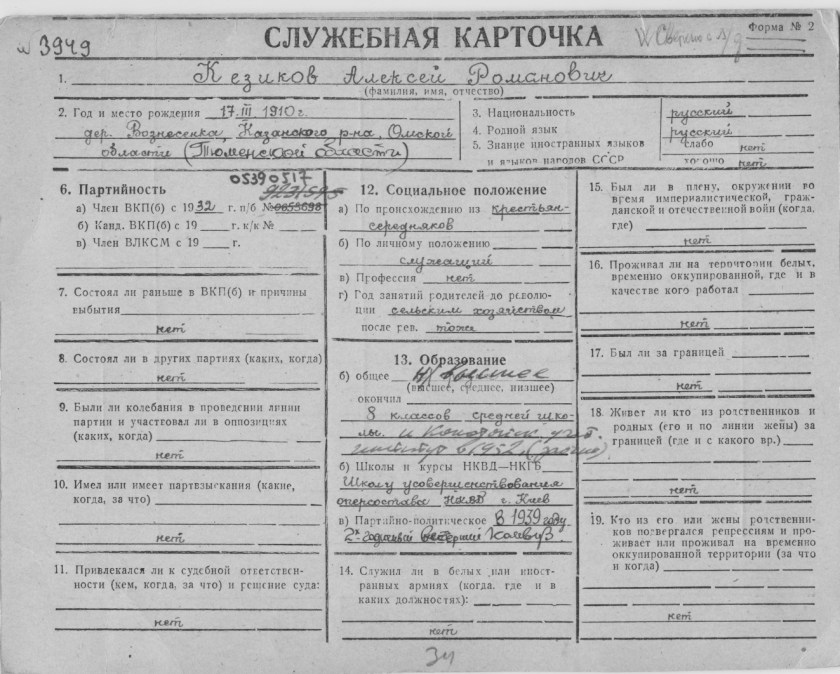 № 3949
СЛУЖЕБНАЯ КАРТОЧКА
Форма № 2
1. Кезиков Алексей Романович
(фамилия, имя, отчество)
2. Год и место рождения 17. III 1910 г.
дер. Вознесенка, Казанского р-на, Омской
области (Тюменской области)
3. Национальность русский
4. Родной язык русский
5. Знание иностранных языков слабо нет
и языков народов СССР хорошо нет
05390517
6. Партийность
а) Член ВКП(б) с 1932 г. п/б №
б) Канд. ВКП(б) с 19 г. к/к №
в) Член ВЛКСМ с 19 г.
7. Состоял ли раньше в ВКП(б) и причины
выбытия
нет
8. Состоял ли в других партиях (каких, когда)
нет
9. Были ли колебания в проведении линии
партии и участвовал ли в оппозициях
(каких, когда)
нет
10. Имел или имеет партвзыскания (какие,
когда, за что)
нет
11. Привлекался ли к судебной ответствен-
ности (кем, когда, за что) и решение суда:
нет
12. Социальное положение
а) По происхождению из крестьян-
середняков
б) По личному положению
служащий
в) Профессия нет
г) Год занятий родителей до револю-
ции сельским хозяйством
после рев. тоже
13. Образование
б) общее н/высшее
(высшее, среднее, низшее)
окончил
8 классов средней шко-
лы. и учит.
институт в 1952 г. (заочно)
б) Школы и курсы НКВД—НКГБ
Школу усовершенствования
оперсостава НКВД г. Киев
в) Партийно-политическое в 1939 году
2х годичный вечерний Комвуз.
14. Служил ли в белых или иност-
ранных армиях (когда, где и в
каких должностях):
нет
15. Был ли в плену, окружении во
время империалистической, граж-
данской и отечественной войн (когда,
где)
нет
16. Проживал ли на территории белых,
временно оккупированной, где и в
качестве кого работал
нет
17. Был ли за границей
нет
18. Живет ли кто из родственников и
родных (его и по линии жены) за
границей (где и с какого вр.)
нет
19. Кто из его или жены родственни-
ков подвергался репрессиям и про-
живает или проживал на временно
оккупированной территории (за что
и когда)
нет